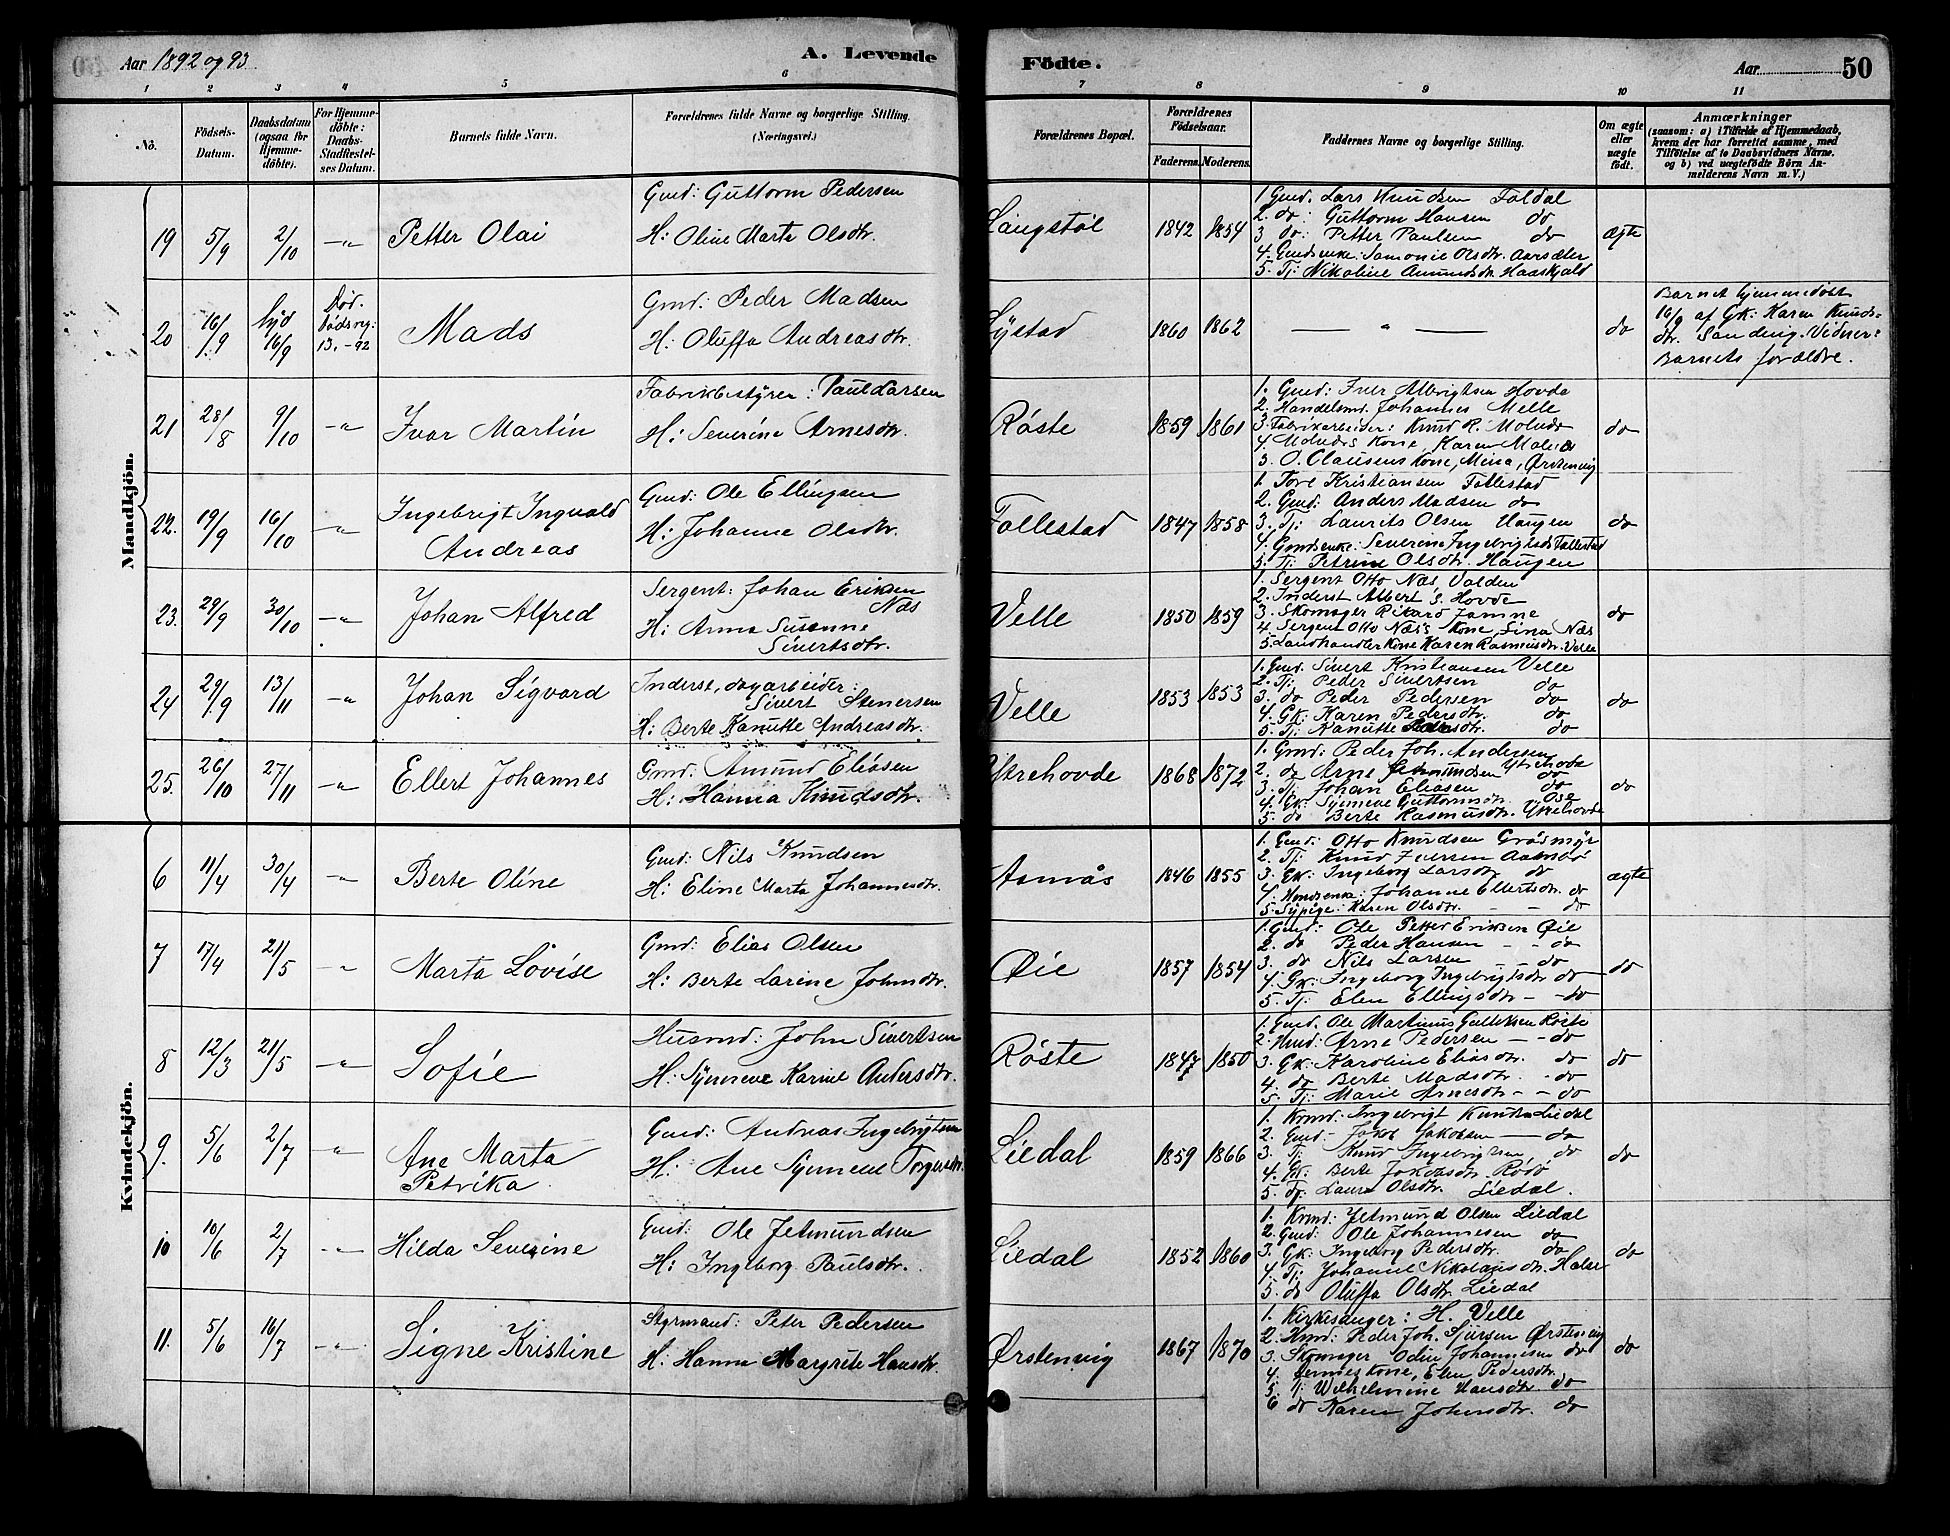 Aar 1892 og 93
A. Levende
Födte.
Aar
50
1 2 3 4 5 6 7 8 9 10 11
No.
Födsels-Datum.
Daabsdatum (ogsaa for Hjemmedöbte).
For Hjemmedöbte: Daabs-Stadfæstelses Datum.
Barnets fulde Navn.
Forældrenes fulde Navne og borgerlige Stilling. (Næringsvei.)
Forældrenes Bopæl.
Forældrenes Födselsaar.
Faderens. Moderens.
Faddernes Navne og borgerlige Stilling.
Om ægte eller uægte födt.
Anmærkninger
(saasom: a) i Tilfælde af Hjemmedaab,
hvem der har forrettet samme, med
Tilföielse af to Daabsvidners Navne.
og b) ved uægtefödte Börn Anmelderens Navn m. V.)
Mandkjön.
19 5/9 2/10 -"- Petter Olai
Gmd: Guttorm Pedersen
H: Oline Marta Olsdtr.
Langstöl 1842 1854
1 Gmd. Lars Knudsen Foldal
2. do: Guttorm Hansen do
3 do: Petter Paulsen do
4. Gmdsenke: Samonie Olsdtr. Aarsæter
5. Tj: Nikoline Amundsdtr. Haaskjold
ægte
20 16/9 hjd 16/9 Död. Dödsreg: 13. - 92 Mads
Gmd: Peder Madsen
H: Oluffa Andreasdtr.
Lystad 1860 1862 — " — do
Barnet hjemmedöbt
16/9 af Gk: Karen Knudsdtr. Sanding. Vidner:
Barnets forældre.
21 28/8 9/10 -"- Ivar Martin
Fabrikbestyrer: Paul Larsen
H: Severine Arnesdtr.
Röste 1859 1861
1. Gmd: Iver Albrigtsen Hovde
2. Handelsmd. Johannes Melle
3. Fabrikarbeider: Knud R. Molnes
4. Molnes Kone, Karen Malene
5. O. Clausens Kone, Mina, Örstenvig
do
22. 19/9 16/10 -"- Ingebrigt Ingvald Andreas
Gmd: Ole Ellingsen
H: Johanne Olsdtr.
Follestad 1847 1858
1. Tore Kristiansen Follestad
2. Gmd: Anders Madsen do
3. Tj: Laurits Olsen Haugen
4. Gmdsenke: Severine Ingebrigtsdtr Follestad
5. Tj: Petrine Olsdtr. Haugen
do
23. 29/9 30/10 -"- Johan Alfred
Sergent: Johan Eriksen Næs
H: Anna Susanne Sivertsdtr.
Velle 1850 1859
1. Sergent Otto Næs, Volden
2. Inderst Albert S. Hovde
3. Skomager Rikard
4 Sergent Otto Næs's Kone, Lina Næs
5. Landhandler Kone Karen Rasmusdtr. Velle
do
24 29/9 13/11 -"- Johan Sigvard
Inderst, dagarbeider:
Sivert Stenersen
H: Berte Kanutte Andreasdtr.
Velle 1853 1853
1. Gmd. Sivert Kristiansen Velle
2. Tj: Peder Sivertsen do
3. do Peder Pedersen do
4. Gk: Karen Pedersdtr. do
5. Tj: Kanutte Pedersdtr. do
do
25. 26/10 27/11 -"- Ellert Johannes
Gmd: Amund Eliasen
H: Hanna Knudsdtr.
Ytrehovde 1868 1872
1. Gmd: Peder Joh. Andersen
2. do Arne Jetmundsen Ytrehovde
3. Tj: Johan Eliasen do
4. Gk: Synneve Guttormsdtr. Ose
5. do Berte Rasmusdtr. Ytrehovde
do
Kvindekjön.
6 11/4 30/4 -"- Berte Oline
Gmd: Nils Knudsen
H: Eline Marta Johannesdtr.
Aamås 1846 1855
1. Gmd: Otto Knudsen Gråsmyr
2. Tj: Knud Iversen Aamås
3. Gk: Ingeborg Larsdtr do
4. Kmdsenke: Johanne Ellertsdtr. do
5. Sypige: Karen Olsdtr. - - do
ægte
7 17/4 21/5 -"- Marta Lovise
Gmd: Elias Olsen
H: Berte Larine Johnsdtr.
Øie 1857 1854
1. Gmd: Ole Petter Eriksen Øie
2. do Peder Hansen - - do
3. do Nils Larsen - do
4. Gk: Ingeborg Ingebrigtsdtr do
5. Tj: Elen Ellingsdtr - - do
do
8 12/3 21/5 -"- Sofie
Husmd: John Sivertsen
H: Synneve Karine Andersdtr.
Röste 1847 1850
1. Gmd. Ole Martinus Gulliksen Röste
2. Hmd: Arne Pedersen - - do
3. Gk: Karoline Eliasdtr. do
4. do Berte Madsdtr. - do
5. Tj: Marie Arnesdtr - - do
do
9. 5/6 2/7 -"- Ane Marta Petrika
Gmd: Andreas Ingebrigtsen
H: Ane Synneve Torgersdtr.
Liedal 1859 1866
1. Kmd: Ingebrigt Knudsen Liedal
2. Gmd: Jakob Jakobsen — do
3. Tj. Knud Ingebrigtsen do
4. Gk. Berte Jakobsdtr.
5. Tj: Laura Olsdtr. Liedal.
do
10 10/6 2/7 -"- Hilda Severine
Gmd: Ole Jetmundsen
H: Ingeborg Paulsdtr.
Liedal 1852 1860
1. Kmd: Jetmund Olsen Liedal
2. Gmd: Ole Johannesen do
3. Gk: Ingeborg Pedersdtr. do
4. Tj: Johanne Nikolaisdtr. Halse
5. do Oluffa Olsdtr. Liedal
do
11. 5/6 16/7 -"- Signe Kristine
Styrmand: Peter Pedersen
H: Hanna Margrete Hansdtr.
Ørstenvig 1867 1870
1. Kirkesanger: H. Velle
2. Hmd: Peder Joh. Sjursen Ørstenvig
3. Skomager Odin Johannesen do
4. Kone, Elen Pedersdtr.
5. Tj: Wilhelmine Hansdtr do
6 do Karen Johnsdtr. do
do